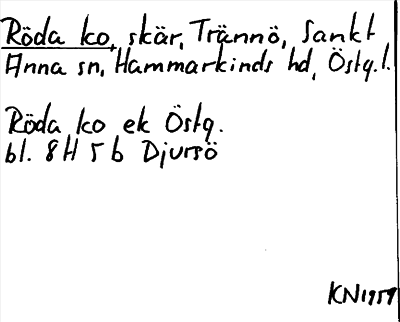 Röda ko, skär, Trännö, Sankt
Anna sn, Hammarkinds hd, Östg.l.
Röda ko ek Östg.
bl. 8H 5b Djursö
KN1959